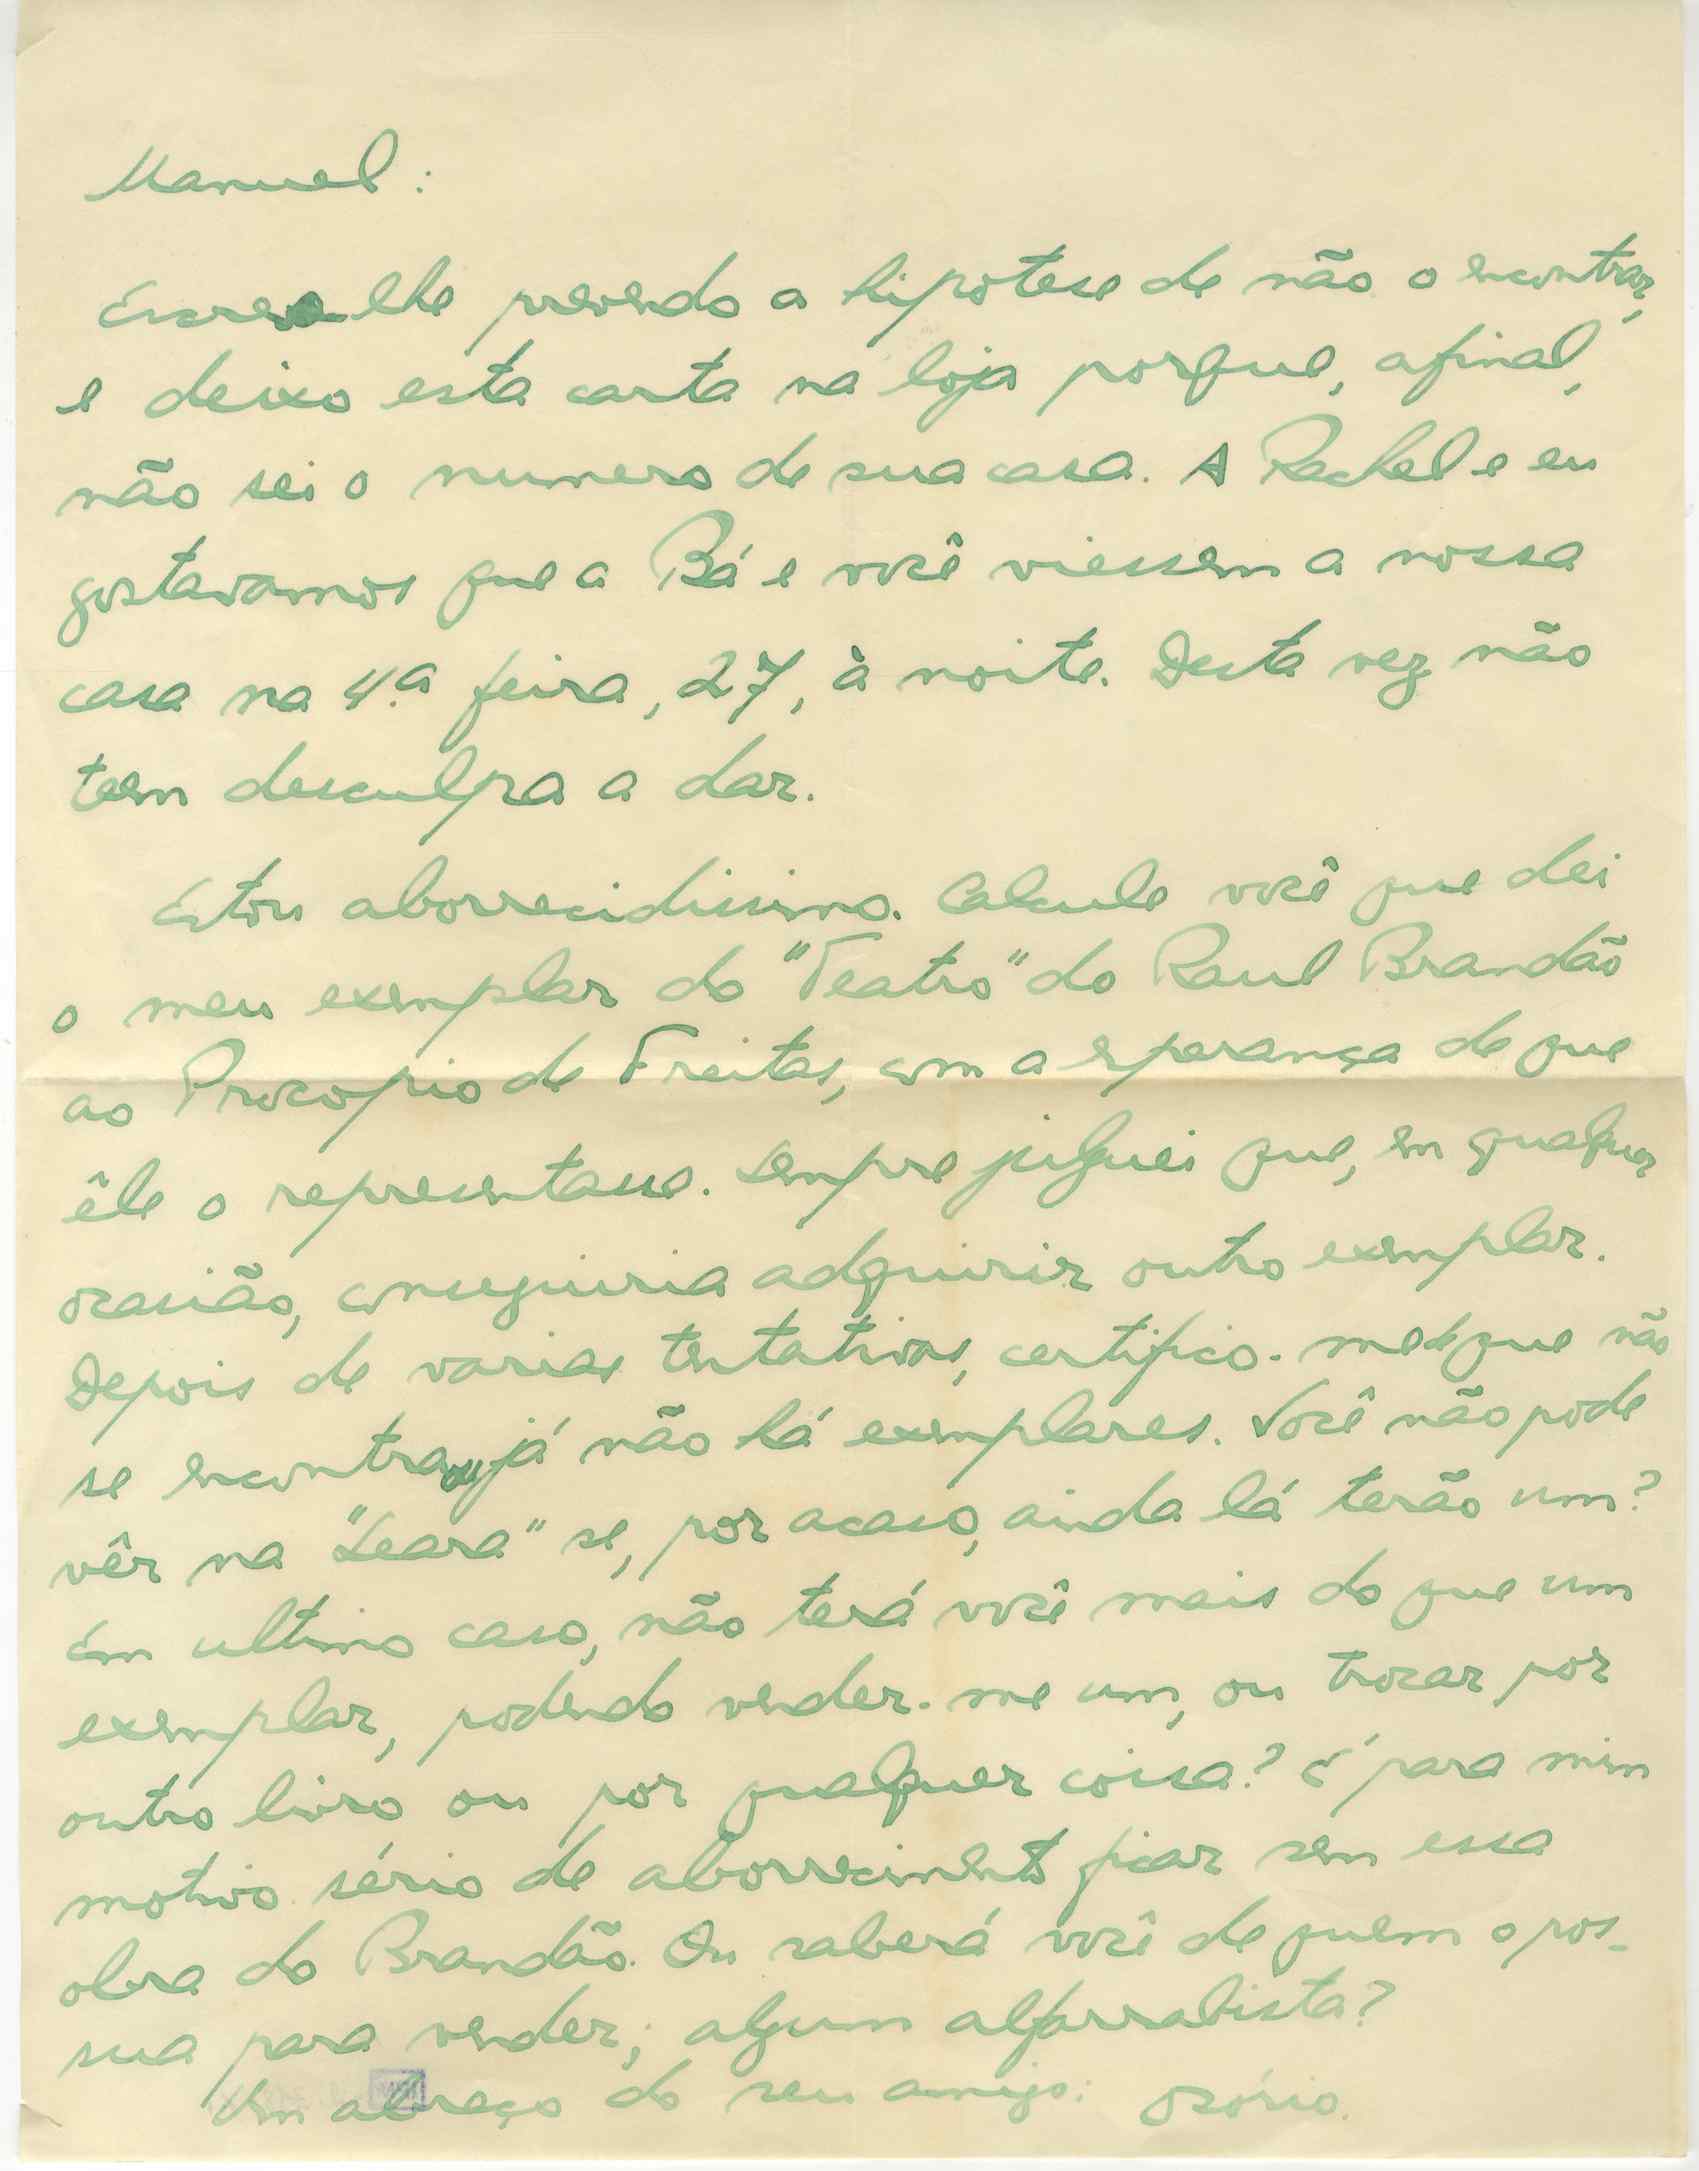 Manuel:
Escrevo lhe prevendo a hipotese de não o encontrar,
e deixo esta carta na loja porque, afinal,
não sei o numero de sua casa. A Rachel e eu
gostavamos que a Bá e você viessem a nossa
casa na 4.ª feira, 27, à noite. Desta vez não
teem desculpa a dar.
Estou aborrecidissimo. Calcule você que dei
o meu exemplar do "Teatro" do Raul Brandão
ao Procopio de Freitas, com a esperança de que
êle o representasse. Sempre julguei que, em qualquer
ocasião, conseguiria adquirir outro exemplar.
Depois de varias tentativas, certifico-me de que não
se encontra, já não há exemplares. Você não pode
vêr na "Seara" se, por acaso, ainda lá terão um?
Em ultimo caso, não terá você mais do que um
exemplar, podendo vender-me um, ou trocar por
outro livro ou por qualquer coisa? É para mim
motivo sério de aborrecimento ficar sem essa
obra do Brandão. Ou saberá você de quem o pos-
sua para vender; algum alfarrabista?
Um abraço do seu amigo: Osório.